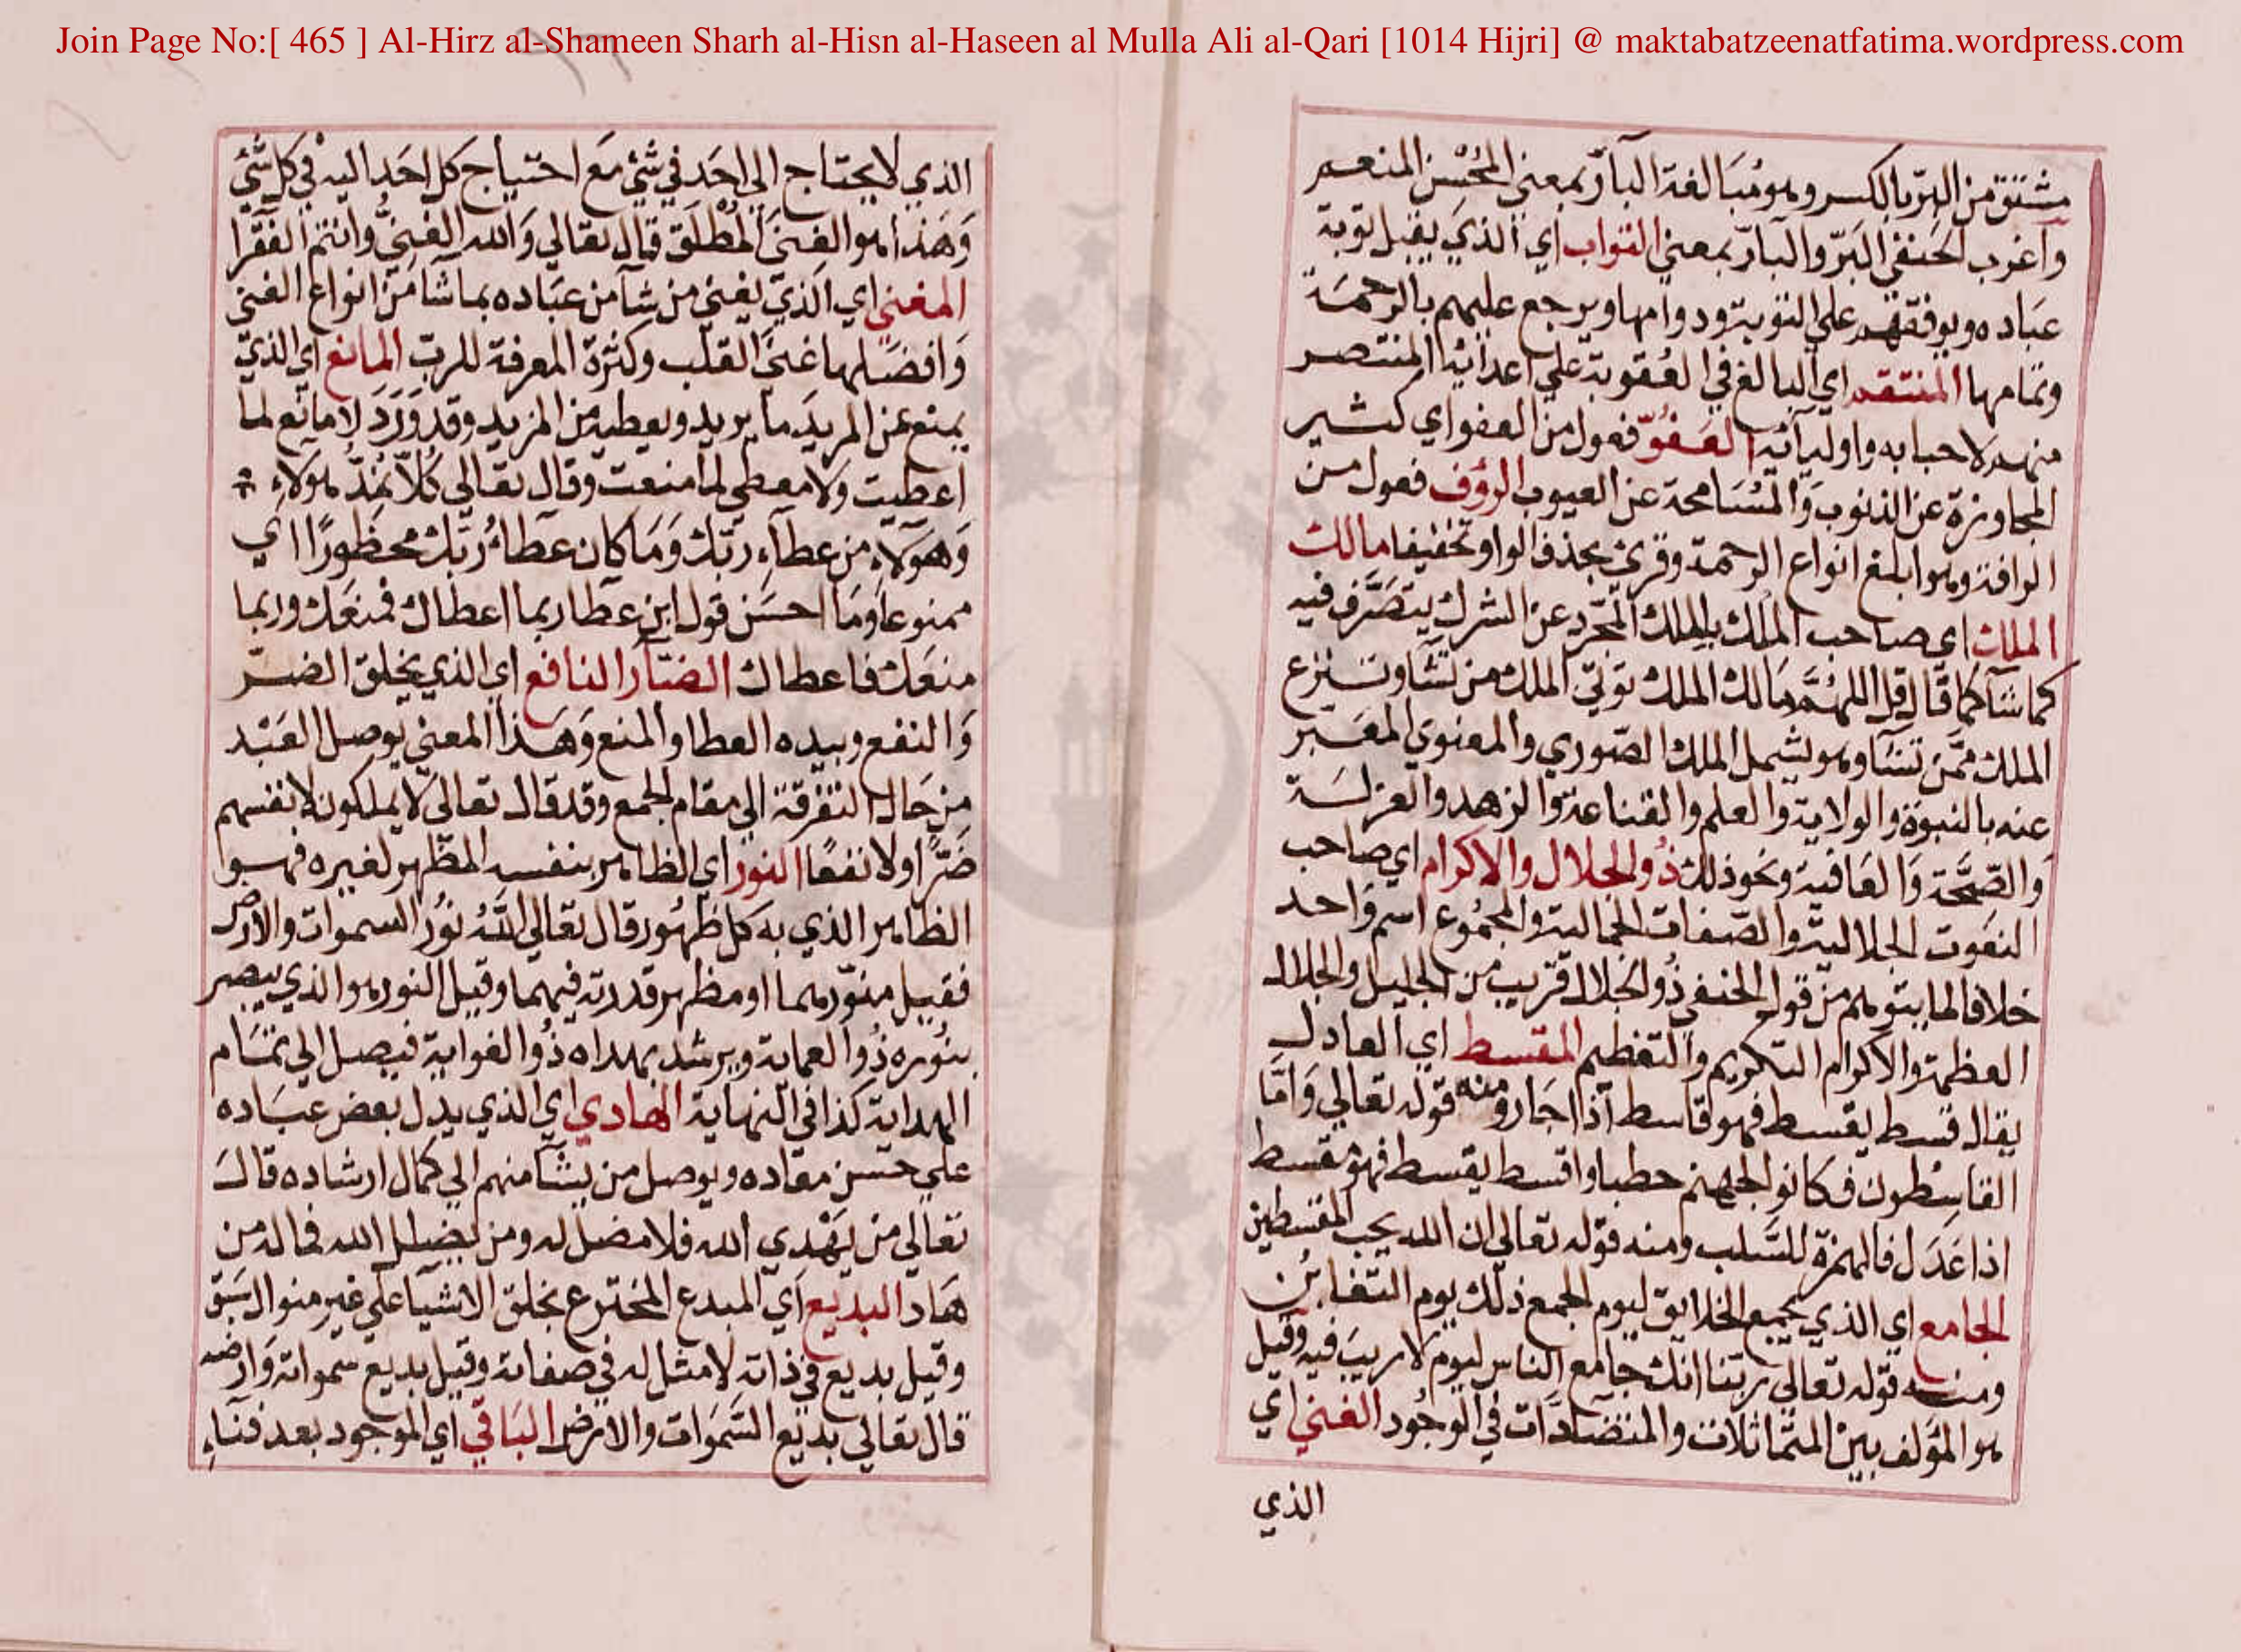 Join Page No:[ 465 ] Al-Hirz al-Shameen Sharh al-Hisn al-Haseen al Mulla Ali al-Qari [1014 Hijri] @ maktabatzeenatfatima.wordpress.com
مشتق من البرّ بالكسر وهو مُبَالغة البآرّ بمعني المُحْسن المنعم
وَاغرب الحَنفي البَرّ والبارّ بمعني التواب اي الذيَ يقبل توبة
عبَاده ويوفقهم علي التوبة ودوامها ويرجع عليهم بالرحمَة
وتمامها المنتقم اي البالغ في العُقوبة علي اعدائه المنتصر
منهم لاحبابه واوليآئه العَفُوّ فعول من العفو اي كثير
المجاوزة عن الذنوب وَالمُسَامحة عن العيوب الرؤف فعول من
الرافة وهو ابلغ انواع الرحمة وقرئ بحذف الواو تخفيفا مالك
الملك اي صاحب المُلك بالملك المجّرد عن الشرك يتصَرَّف فيه
كما شآ كما قَال قل اللهمَّ مَالك الملك توتي الملك من تشآ وتنزع
الملك ممّن تشآ وهو يشمل الملك الصّوري والمعنوي المعَبر
عنه بالنبوة والولاية والعلم والقناعة والزهد والعزلَة
وَالصِّحَّة وَالعَافية ونحو ذلك ذُو الجلال والاكرام اي صاحب
النعوت الجلالية والصّفات الجمالية والمجمُوع اسم وَاحد
خلافا لما يتوهم من قول الحنفي ذُو الجلال قريب من الجليل والجلال
العظمة والاكرام التكريم وَالتعظيم المقسط اي العادل
يقال قسط يقسط فهو قاسط اذا جَار ومنه قوله تعالي وَامَّا
القاسِطون فكانوا لجهنم حطبا واقسط يقسط فهو مُقسط
اذا عَدَل فالهمزة للسَّلب ومنه قوله تعالي ان الله يحب المقسطين
الجامع اي الذي يجمع الخلايق ليوم الجمع ذلك يوم التغابُن
ومنه قوله تعالى ربّنا انك جامع الناس ليوم لا ريبَ فيه وقيل
هو المؤلف بين المتماثلات والمتضَادَّات في الوجُود الغني اي
الذي
الذي لا يحتاج الي احَد في شئٍ مَع احتياج كل احَد اليه في كل شَئ
وَهَذا هو الغنيَ المُطلَق قال تعالي وَالله الغنيُّ وانتم الفقَرا
المغني اي الذيَ يغني من شآ من عبَاده بما شآ مَن انواع الغنَى
وَافضَلها غنَي القلب وكثرة المعرفة للربّ المانع اي الذيَ
يمنع عن المريدَ ما يريد ويعطيه من المزيد وقد وَرَدَ لا مانع لما
اعطيت ولا معطي لما منعت وقال تعالي كُلّاً نمُدُّ هَؤلاء
وَهَؤلآء من عطآء ربّك وَمَا كان عَطاءُ رَبّك محظورًا اي
ممنوعا وَمَا احسَن قول ابن عطا ربما اعطاك فمنعَك وربما
منعَك فاعطاك الضآر النافع اي الذي يخلق الضر
وَالنفع وبيده العطا والمنع وَهَذا المعني يوصل العَبْد
من حَال التفرقة الي مقام الجمع وقد قال تعالى لا يملكون لانفسهم
ضَرًّا ولا نفعًا النور اي الظاهر بنفسه المظهر لغيره فهو
الظاهر الذي به كل ظهُور قال تعالي اللّٰهُ نُورُ السموات والارض
فقيل منوّرهما او مظهر قدرته فيهما وقيل النور هو الذي يبصر
بنُوره ذُو العماية ويرشد بهداه ذُو الغواية فيصل الي تمَام
الهداية كذا في النهاية الهادي اي الذي يدل بعض عبَاده
علي حسن معاده ويوصل من يشآ منهم الي كمال ارشاده قال
تعالي من يَهْدي الله فلا مضل له ومن يضلل الله فما له من
هَاد البديع اي المبدع المخترع بخلق الاشيا علي غير منوال سَبق
وقيل بديع في ذاته لا مثل له في صفاته وقيل بديع سمواته وَارضه
قال تعالي بديع السَّمَوات والارض البَاقي اي الموجود بعد فنآء